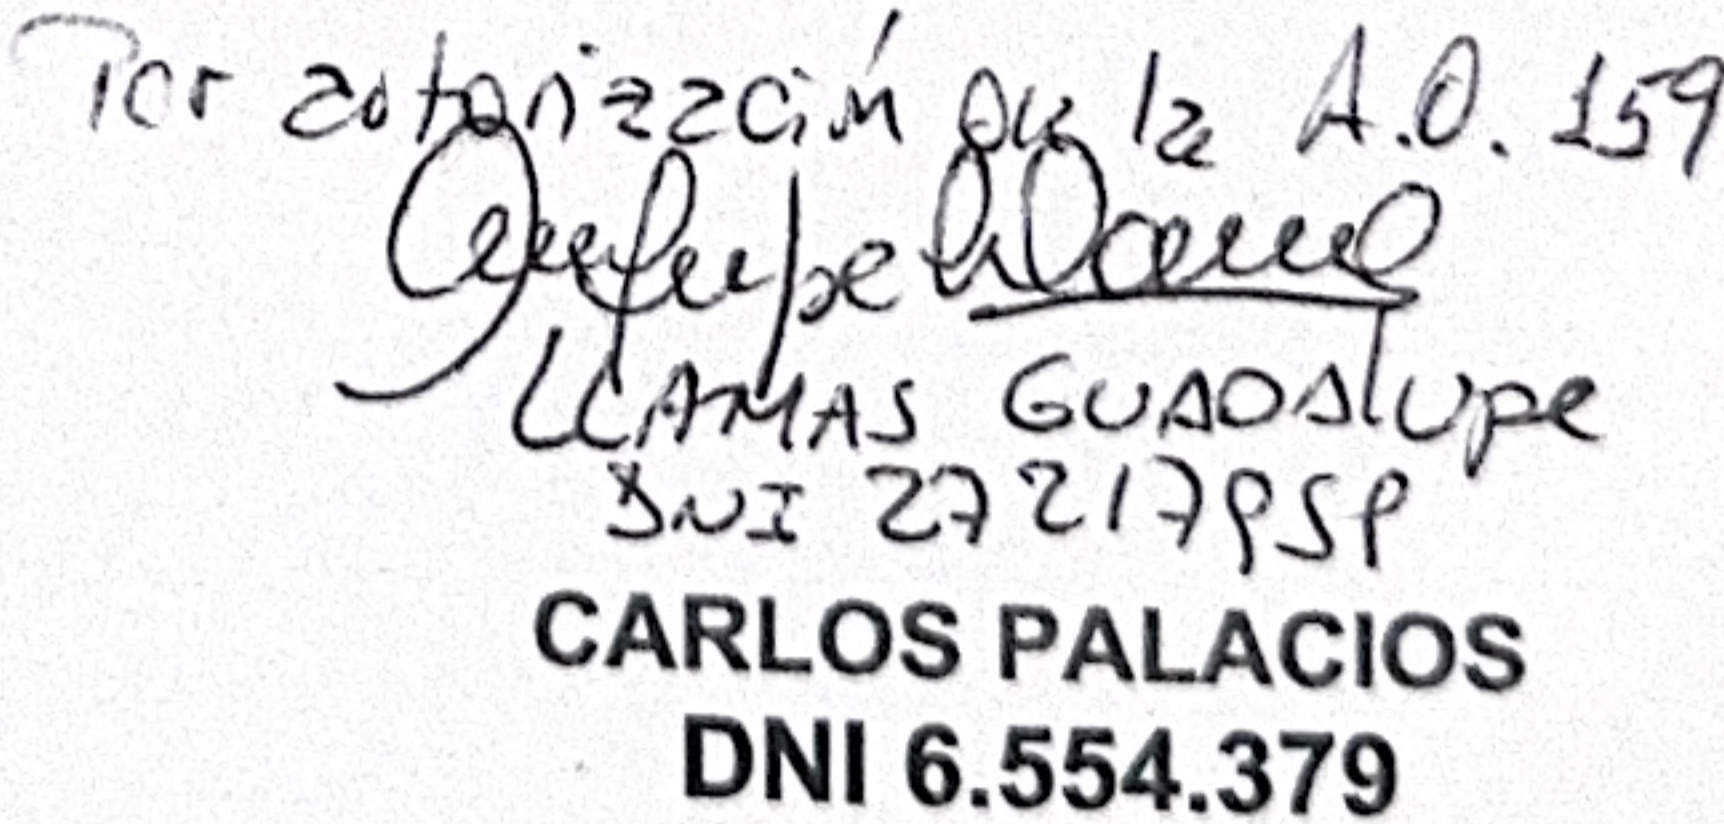 Por autorización de la A.O. 159
Guadalupe Llamas
LLAMAS GUADAlupe
DNI 27217959
CARLOS PALACIOS
DNI 6.554.379